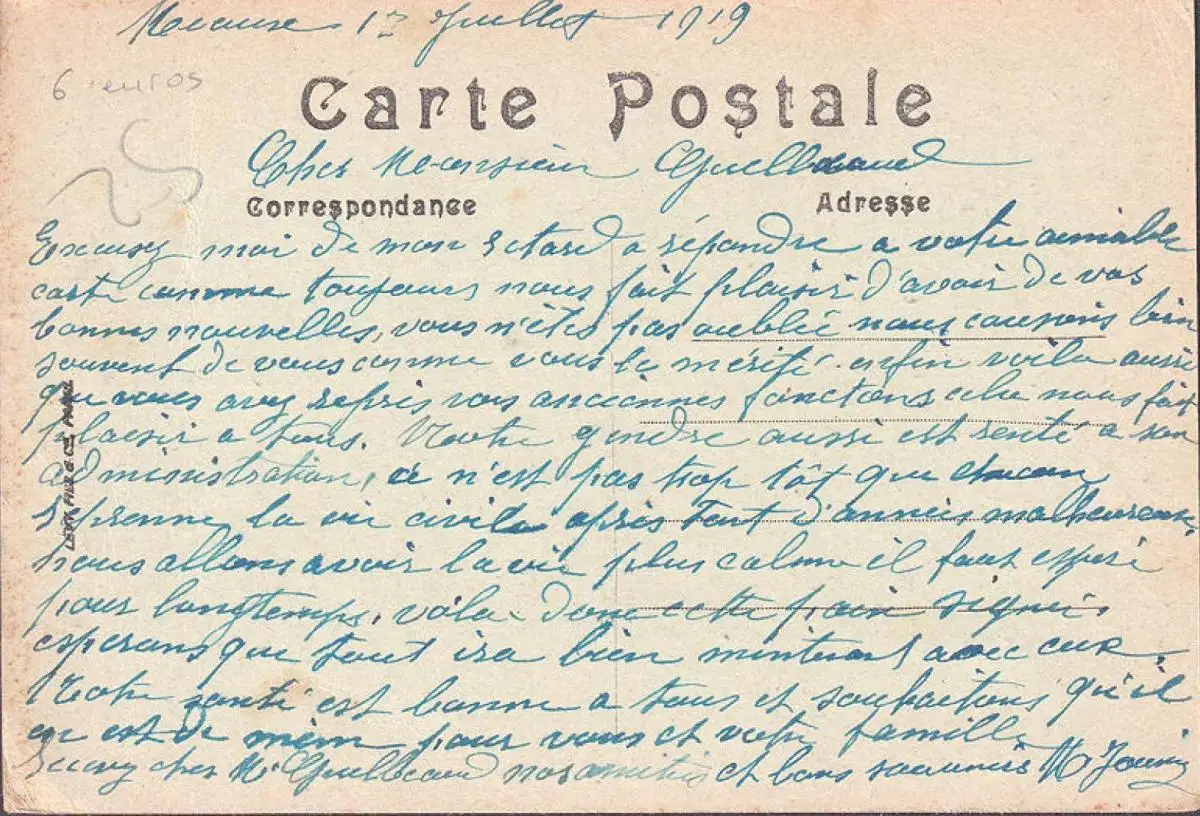 17 Juillet 1919
6 euros
Carte Postale
Cher Monsieur
Correspondance
Adresse
Excusez moi de mon retard a répondre a votre aimable
carte comme toujours nous fait plaisir d'avoir de vos
bonnes nouvelles, vous n'êtes pas oublié nous causons bien
souvent de vous comme vous le mérité enfin voila aussi
que vous avez repris vos anciennes fonctions cela nous fait
plaisir a tous. Notre gendre aussi est rentré a son
administration, ce n'est pas trop tôt que chacun
reprenne la vie civile après tant d'années malheureuse,
nous allons avoir la vie plus calme il faut espéré
pour longtemps, voila donc cette paix signée,
esperons que tout ira bien mintenant avec eux,
Notre santé est bonne a tous et souhaitons qu'il
en est de même pour vous et votre famille
Recevez cher Mr nos amitiés et bons souvenirs